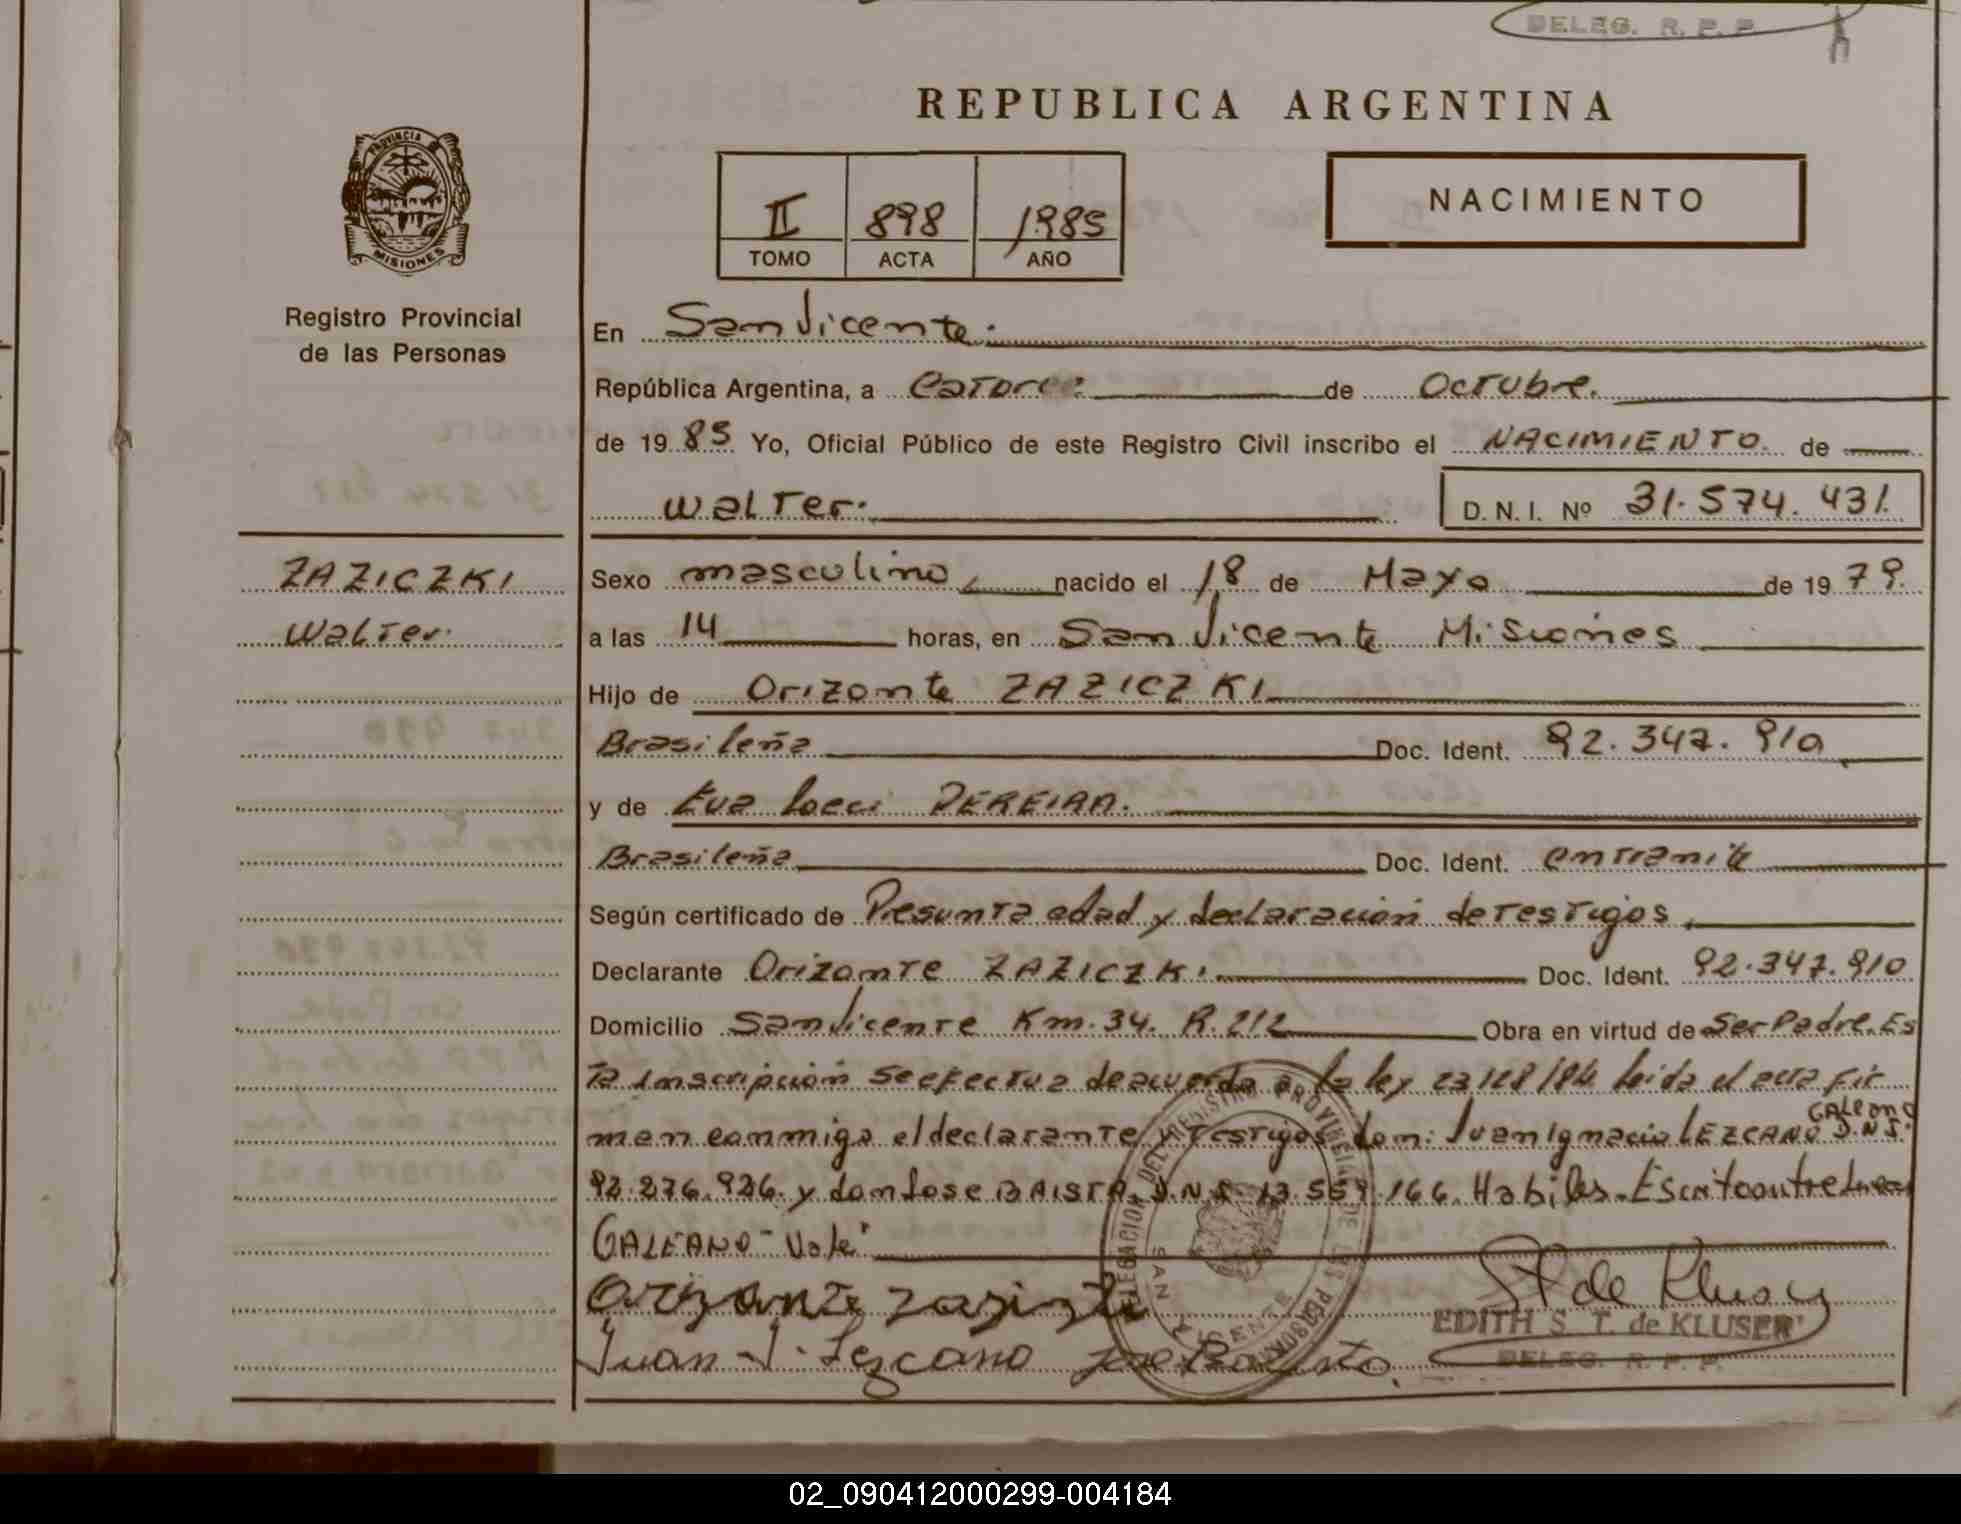 DELEG. R. P. P.
REPUBLICA ARGENTINA
PROVINCIA
MISIONES
II 898 1985
TOMO ACTA AÑO
NACIMIENTO
Registro Provincial
de las Personas
En San Vicente.
República Argentina, a Catorce de Octubre.
de 1985 Yo, Oficial Público de este Registro Civil inscribo el NACIMIENTO. de
Walter. D. N. I. Nº 31.574.431.
ZAZICZKI
Walter.
Sexo masculino, nacido el 18 de Mayo de 1979.
a las 14 horas, en San Vicente Misiones
Hijo de Orizonte ZAZICZKI
Brasileña Doc. Ident. 92.347.910
y de Eva PEREIRA.
Brasileña Doc. Ident. en tramite
Según certificado de Presunta edad y declaración de testigos,
Declarante Orizonte ZAZICZKI. Doc. Ident. 92.347.910
Domicilio San Vicente Km. 34. R. 212 Obra en virtud de Ser Padre. Es
ta inscripción se efectua de acuerdo a la ley 23128/84. leida el acta fir
man conmigo el declarante y testigos don: Juan Ignacio LEZCANO GALEANO D.N.I.
92.276.926. y don Jose BAISTA. D.N.I. 13.559.166. Habiles. Escrito entre lineas
GALEANO "Vale"
Orizonte
Juan I. Lezcano Jose
DELEGACION DEL REGISTRO PROVINCIAL DE LAS PERSONAS
SAN VICENTE
St de Kluser
EDITH S. T. de KLUSER
DELEG. R. P. P.
02_090412000299-004184